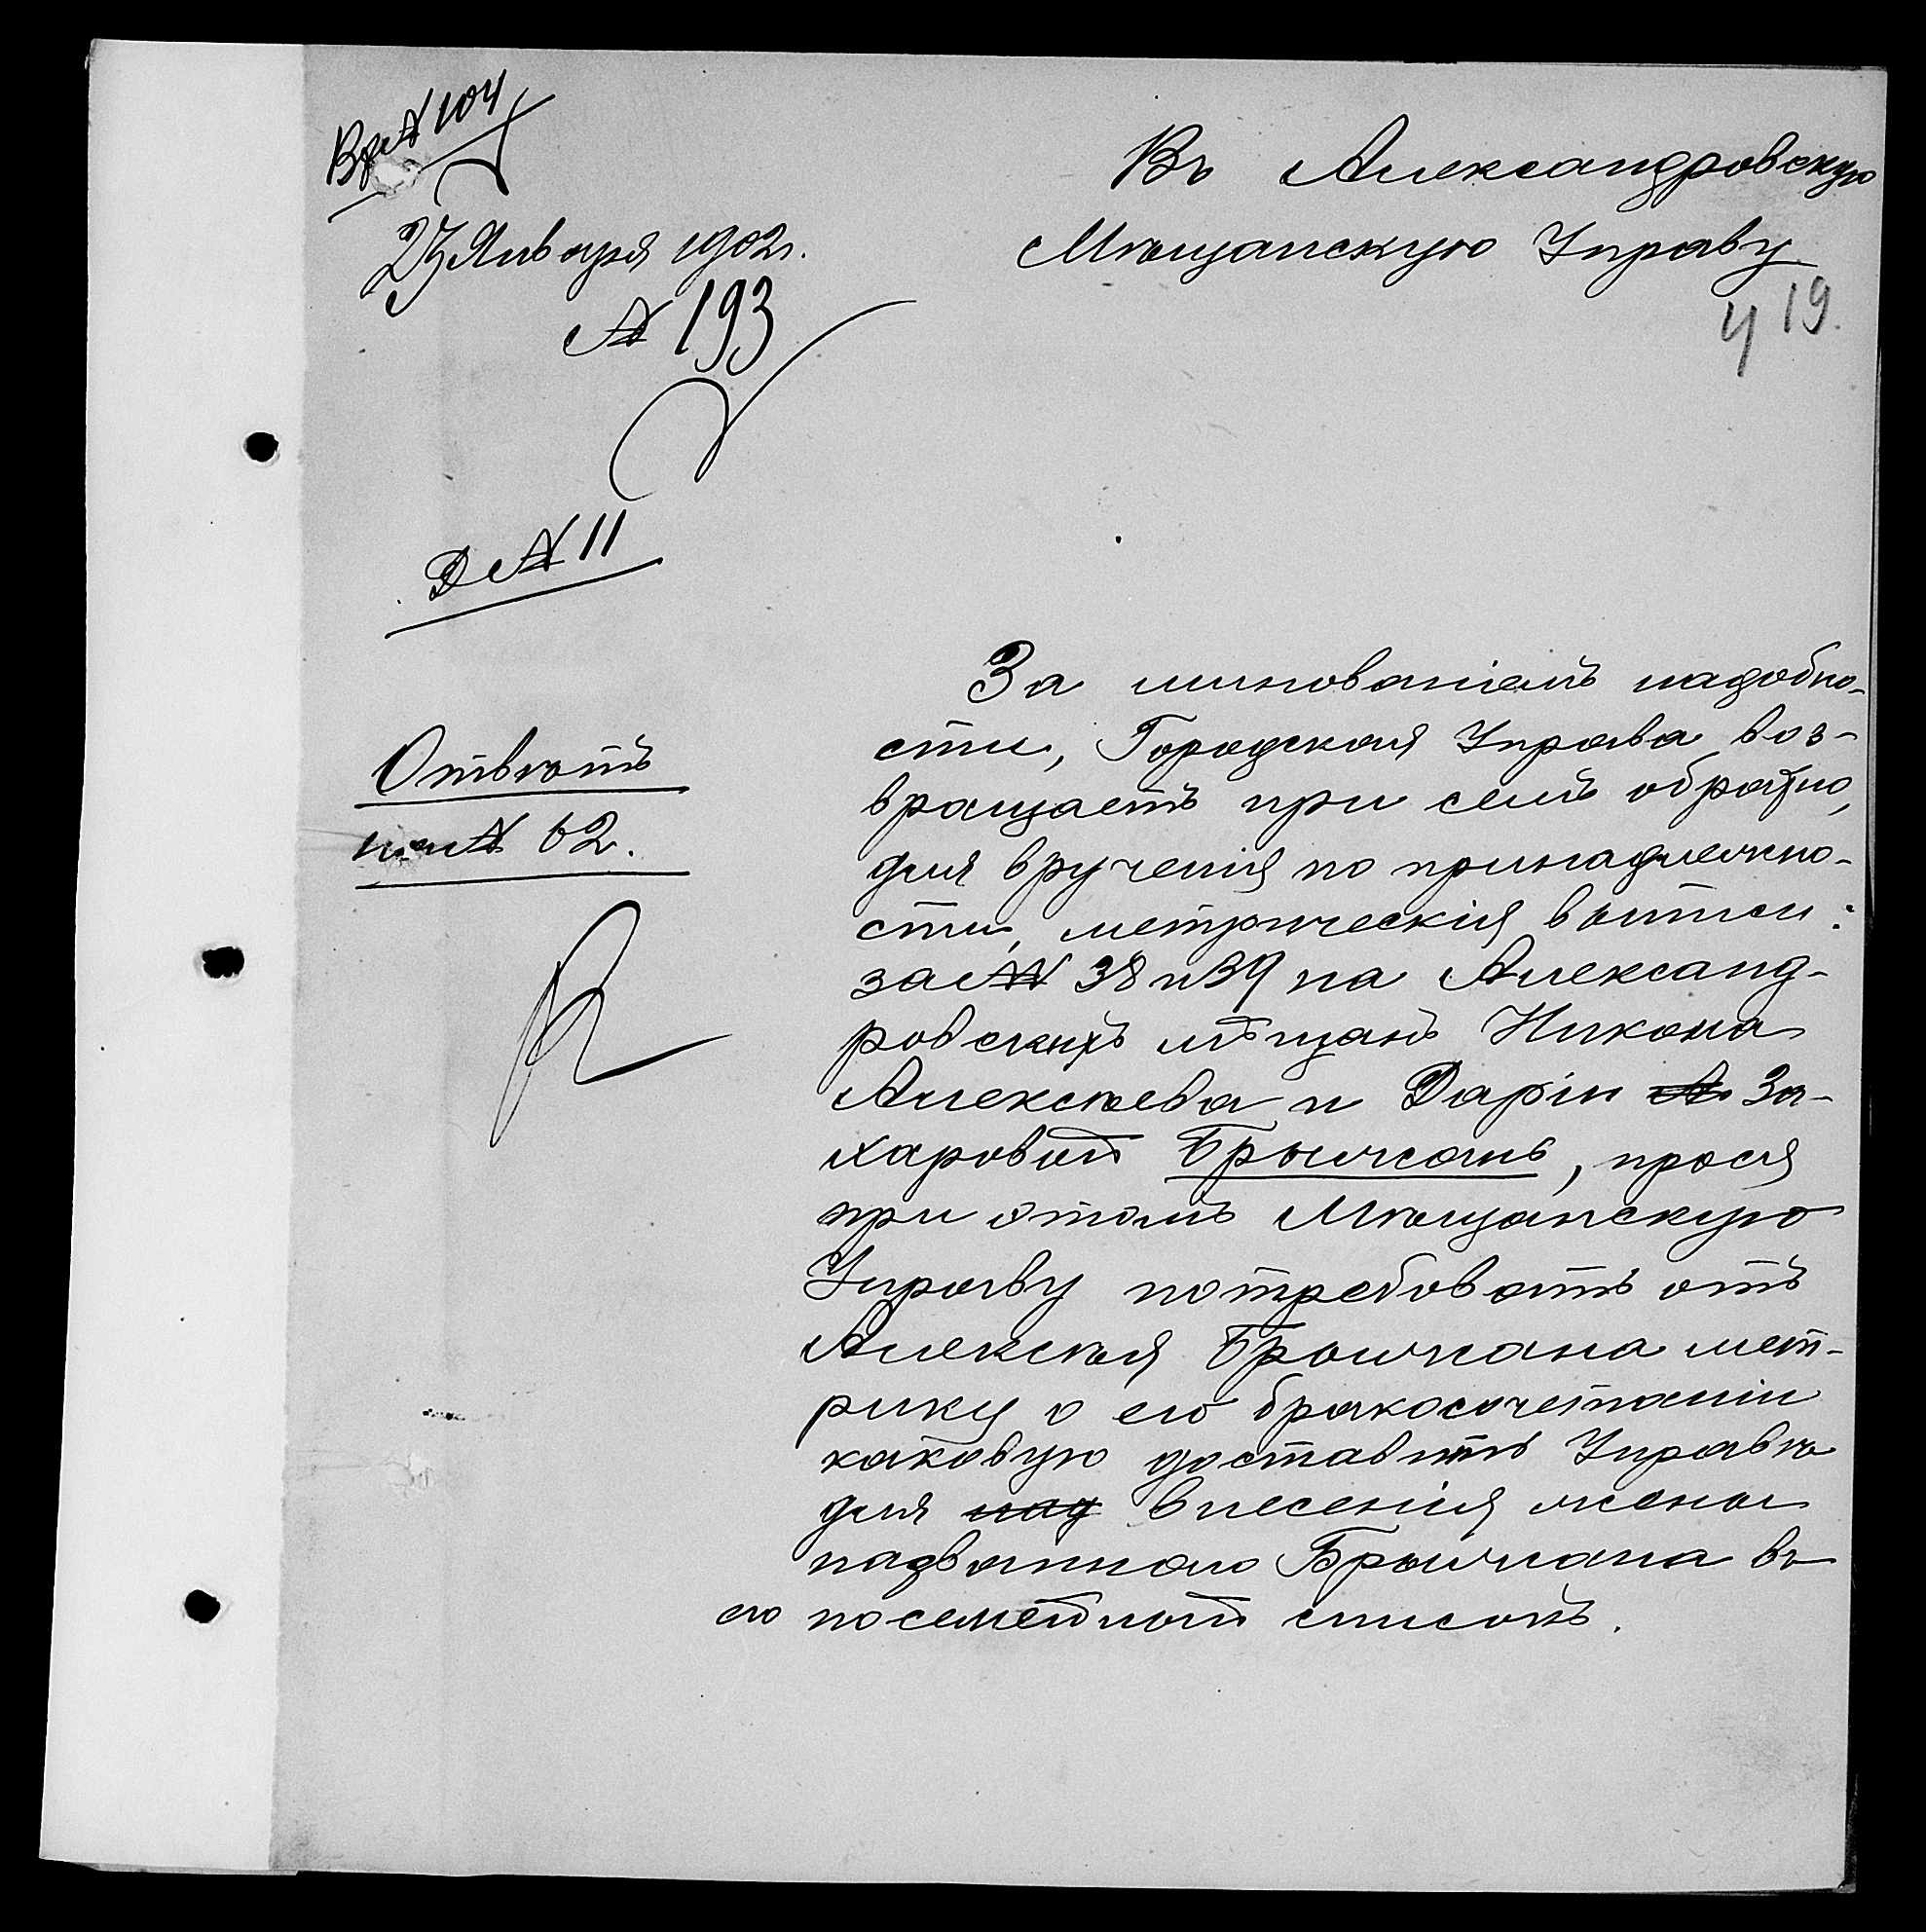 Вх № 104
27 Января 1902 г.
№ 193
Въ Александровскую
Мѣщанскую Управу
4 19.
Д № 11
Отвѣтъ
№ 62.
За минованіемъ надобно-
сти, Городская Управа воз-
вращаетъ при семъ обратно,
для врученія по принадлежно-
сти, метрическія выписи:
за №№ 38 и 39 на Александ-
ровскихъ мѣщанъ Никона
Алексѣева и Дарія А За-
харовой Брычганъ, прося
при этомъ Мѣщанскую
Управу потребовать отъ
Алексѣя Брычгана мет-
рику о его бракосочетаніи
каковую доставить Управѣ
для над внесенія жены
названного Брычгана въ
его посемейной списокъ.